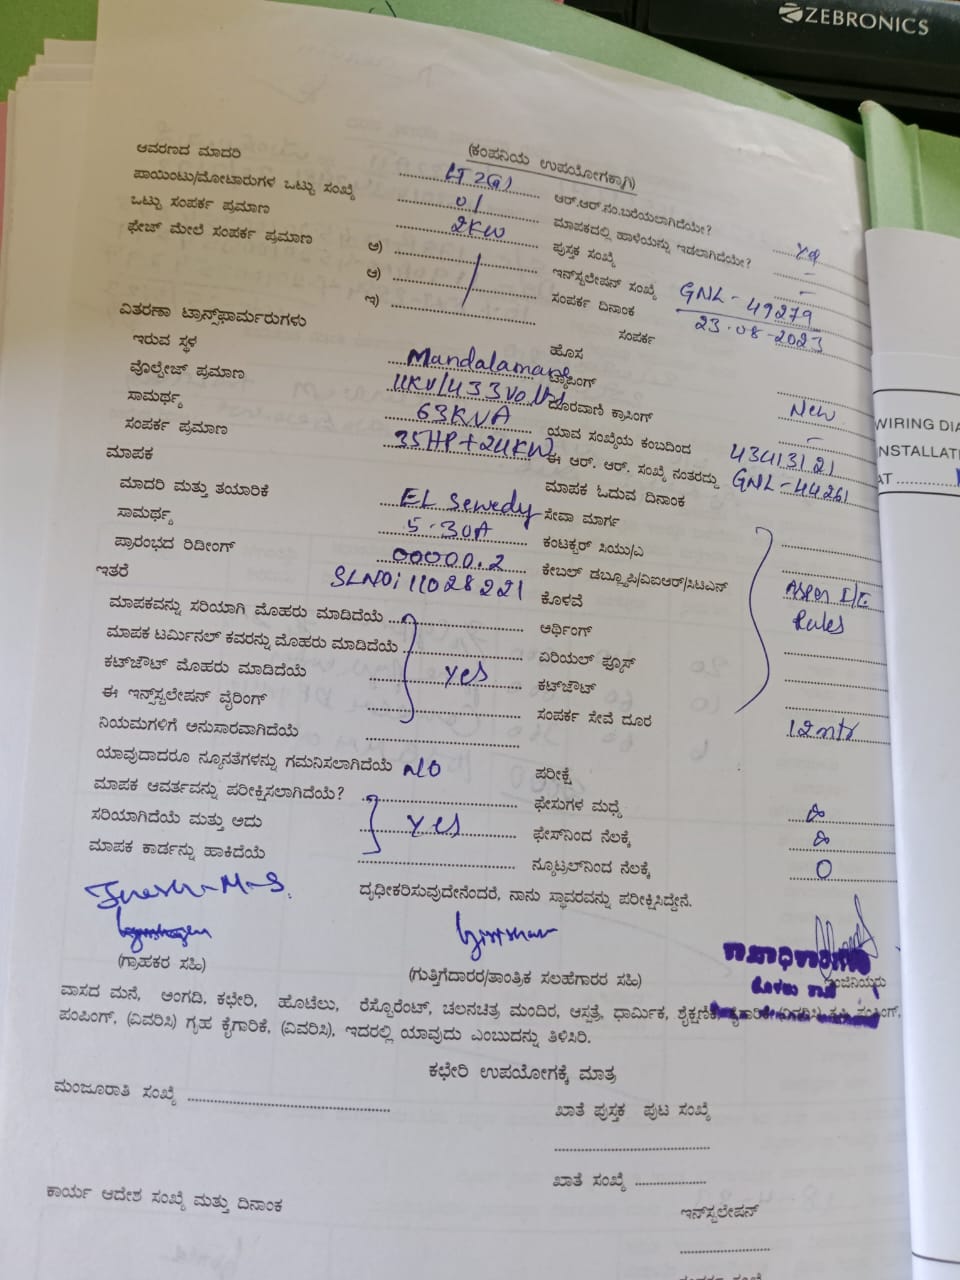 ZEBRONICS
(ಕಂಪನಿಯ ಉಪಯೋಗಕ್ಕಾಗಿ)
ಆವರಣದ ಮಾದರಿ LT2(a) ಆರ್.ಆರ್.ನಂ.ಬರೆಯಲಾಗಿದೆಯೇ?
ಪಾಯಿಂಟು/ಮೋಟಾರುಗಳ ಒಟ್ಟು ಸಂಖ್ಯೆ 01 ಮಾಪಕದಲ್ಲಿ ಹಾಳೆಯನ್ನು ಇಡಲಾಗಿದೆಯೇ? –
ಒಟ್ಟು ಸಂಪರ್ಕ ಪ್ರಮಾಣ 2KW ಪುಸ್ತಕ ಸಂಖ್ಯೆ –
ಫೇಜ್ ಮೇಲೆ ಸಂಪರ್ಕ ಪ್ರಮಾಣ ಅ) ಇನ್‌ಸ್ಟಲೇಷನ್ ಸಂಖ್ಯೆ GNL - 49279
ಆ) ಸಂಪರ್ಕ ದಿನಾಂಕ 23.08.2023
ಇ) ಸಂಪರ್ಕ
ವಿತರಣಾ ಟ್ರಾನ್ಸ್‌ಫಾರ್ಮರುಗಳು ಹೊಸ New
ಇರುವ ಸ್ಥಳ Mandalamane ಟ್ಯಾಪಿಂಗ್
ವೊಲ್ಟೇಜ್ ಪ್ರಮಾಣ 11KV/433Volts ದೂರವಾಣಿ ಕ್ರಾಸಿಂಗ್ –
ಸಾಮರ್ಥ್ಯ 63KVA ಯಾವ ಸಂಖ್ಯೆಯ ಕಂಬದಿಂದ 43413121
ಸಂಪರ್ಕ ಪ್ರಮಾಣ 35HP+24KW ಈ ಆರ್. ಆರ್. ಸಂಖ್ಯೆ ನಂತರದ್ದು GNL - 44261
ಮಾಪಕ ಮಾಪಕ ಓದುವ ದಿನಾಂಕ
ಮಾದರಿ ಮತ್ತು ತಯಾರಿಕೆ EL Sewedy ಸೇವಾ ಮಾರ್ಗ
ಸಾಮರ್ಥ್ಯ 5-30A ಕಂಟಕ್ಟರ್ ಸಿಯು/ಎ
ಪ್ರಾರಂಭದ ರಿಡೀಂಗ್ 00000.2 ಕೇಬಲ್ ಡಬ್ಲ್ಯೂಪಿ/ವಿಐಆರ್/ಸಿಟಿಎಸ್
ಇತರೆ SLNO: 11028221 ಕೊಳವೆ Asper I/E
ಮಾಪಕವನ್ನು ಸರಿಯಾಗಿ ಮೊಹರು ಮಾಡಿದೆಯೆ ಆರ್ಥಿಂಗ್ Rules
ಮಾಪಕ ಟರ್ಮಿನಲ್ ಕವರನ್ನು ಮೊಹರು ಮಾಡಿದೆಯೆ ಏರಿಯಲ್ ಫ್ಯೂಸ್
ಕಟ್‌ಔಟ್ ಮೊಹರು ಮಾಡಿದೆಯೆ yes ಕಟ್‌ಔಟ್
ಈ ಇನ್‌ಸ್ಟಲೇಷನ್ ವೈರಿಂಗ್ ಸಂಪರ್ಕ ಸೇವೆ ದೂರ 12mtr
ನಿಯಮಗಳಿಗೆ ಅನುಸಾರವಾಗಿದೆಯೆ
ಯಾವುದಾದರೂ ನ್ಯೂನತೆಗಳನ್ನು ಗಮನಿಸಲಾಗಿದೆಯೆ NO ಪರೀಕ್ಷೆ
ಮಾಪಕ ಆವರ್ತವನ್ನು ಪರೀಕ್ಷಿಸಲಾಗಿದೆಯೆ? ಫೇಸುಗಳ ಮಧ್ಯೆ ∞
ಸರಿಯಾಗಿದೆಯೆ ಮತ್ತು ಅದು yes ಫೇಸ್‌ನಿಂದ ನೆಲಕ್ಕೆ ∞
ಮಾಪಕ ಕಾರ್ಡನ್ನು ಹಾಕಿದೆಯೆ ನ್ಯೂಟ್ರಲ್‌ನಿಂದ ನೆಲಕ್ಕೆ 0
ದೃಢೀಕರಿಸುವುದೇನೆಂದರೆ, ನಾನು ಸ್ಥಾವರವನ್ನು ಪರೀಕ್ಷಿಸಿದ್ದೇನೆ.
(ಗ್ರಾಹಕರ ಸಹಿ) (ಗುತ್ತಿಗೆದಾರರ/ತಾಂತ್ರಿಕ ಸಲಹೆಗಾರರ ಸಹಿ)
ವಾಸದ ಮನೆ, ಅಂಗಡಿ, ಕಛೇರಿ, ಹೊಟೆಲು, ರೆಸ್ಟೊರೆಂಟ್, ಚಲನಚಿತ್ರ ಮಂದಿರ, ಆಸ್ಪತ್ರೆ, ಧಾರ್ಮಿಕ, ಶೈಕ್ಷಣಿಕ,
ಪಂಪಿಂಗ್, (ವಿವರಿಸಿ) ಗೃಹ ಕೈಗಾರಿಕೆ, (ವಿವರಿಸಿ), ಇದರಲ್ಲಿ ಯಾವುದು ಎಂಬುದನ್ನು ತಿಳಿಸಿರಿ.
ಕಛೇರಿ ಉಪಯೋಗಕ್ಕೆ ಮಾತ್ರ
ಮಂಜೂರಾತಿ ಸಂಖ್ಯೆ ಖಾತೆ ಪುಸ್ತಕ ಪುಟ ಸಂಖ್ಯೆ
ಖಾತೆ ಸಂಖ್ಯೆ
ಕಾರ್ಯ ಆದೇಶ ಸಂಖ್ಯೆ ಮತ್ತು ದಿನಾಂಕ ಇನ್‌ಸ್ಟಲೇಷನ್
WIRING DIA
NSTALLATI
AT